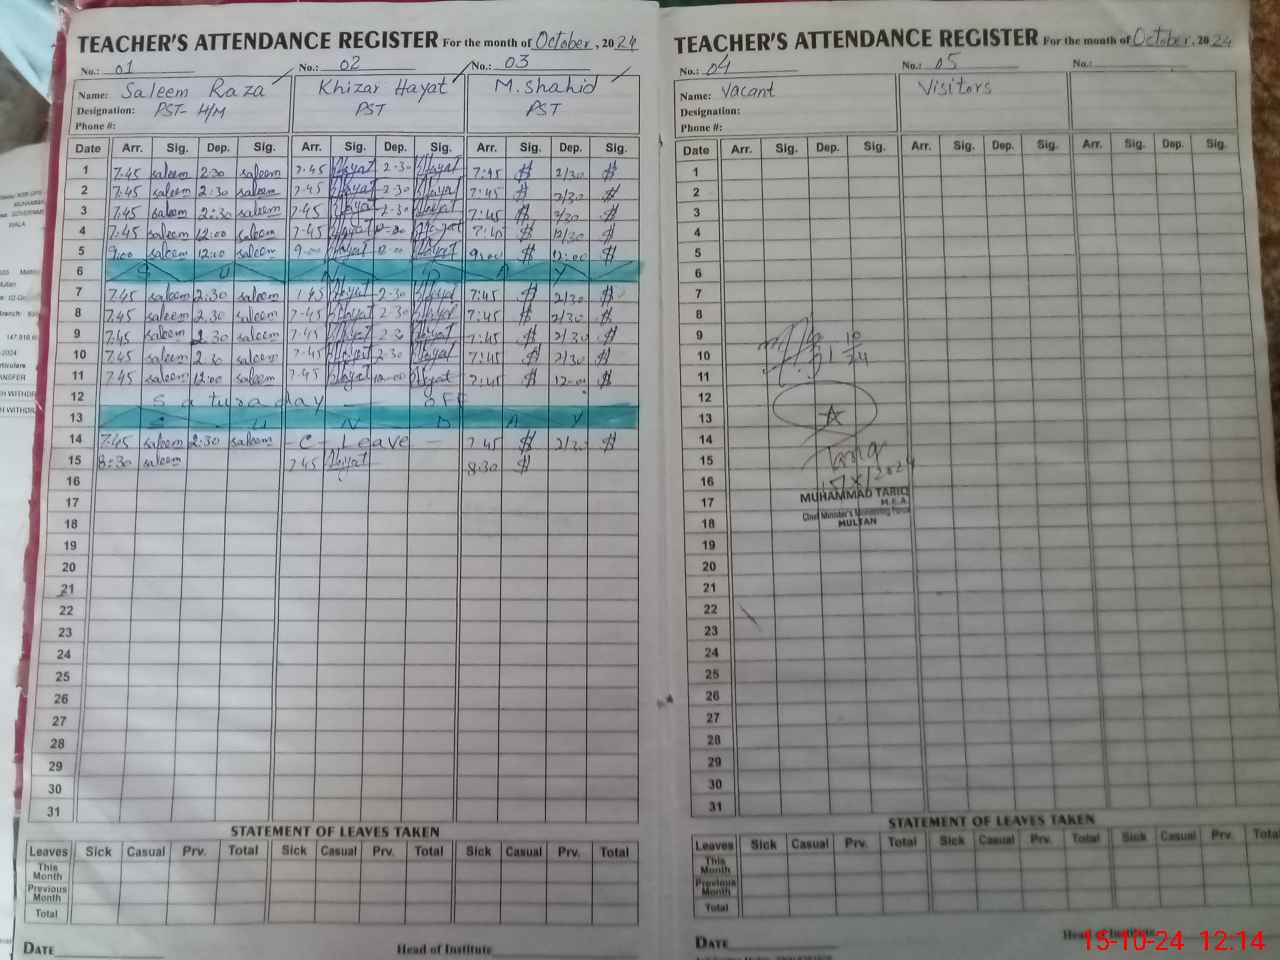 TEACHER'S ATTENDANCE REGISTER For the month of October, 2024
No.: 01 No.: 02 No.: 03
Name: Saleem Raza Khizar Hayat M. Shahid
Designation: PST- H/M PST PST
Phone #:
Date Arr. Sig. Dep. Sig. Arr. Sig. Dep. Sig. Arr. Sig. Dep. Sig.
1 7.45 saleem 2:30 saleem 7-45 Hayat 2-30 Hayat 7:45 2/30
2 7.45 saleem 2:30 saleem 7-45 Hayat 2-30 Hayat 7:45 2/30
3 7.45 saleem 2:30 saleem 7-45 Hayat 2-30 Hayat 7:45 2/30
4 7:45 saleem 12:00 saleem 7-45 Hayat 12-00 Hayat 7:45 12/30
5 9:00 saleem 12:00 saleem 9-00 Hayat 12-00 Hayat 9:00 12:00
6 S U N D A Y
7 7.45 saleem 2:30 saleem 7.45 Hayat 2-30 Hayat 7:45 2/30
8 7.45 saleem 2.30 saleem 7-45 Hayat 2-30 Hayat 7:45 2/30
9 7.45 saleem 2.30 saleem 7-45 Hayat 2-30 Hayat 7:45 2/30
10 7.45 saleem 2 30 saleem 7-45 Hayat 2-30 Hayat 7:45 2/30
11 7.45 saleem 12:00 saleem 7-45 Hayat 12-00 Hayat 7:45 12-00
12 Saturaday - OFF
13 S U N D A Y
14 7:45 saleem 2:30 saleem - C - Leave - 7 45 2/30
15 8:30 saleem 7 45 Hayat 8:30
16
17
18
19
20
21
22
23
24
25
26
27
28
29
30
31
STATEMENT OF LEAVES TAKEN
Leaves Sick Casual Prv. Total Sick Casual Prv. Total Sick Casual Prv. Total
This Month
Previous Month
Total
DATE Head of Institute
TEACHER'S ATTENDANCE REGISTER For the month of October, 2024
No.: 04 No.: 05 No.:
Name: Vacant Visitors
Designation:
Phone #:
Date Arr. Sig. Dep. Sig. Arr. Sig. Dep. Sig. Arr. Sig. Dep. Sig.
1
2
3
4
5
6
7
8
9
10
11
12
13
14
15
16
17
18
19
20
21
22
23
24
25
26
27
28
29
30
31
MUHAMMAD TARIQ
M.E.A.
Chief Minister's Monitoring Force
MULTAN
STATEMENT OF LEAVES TAKEN
Leaves Sick Casual Prv. Total Sick Casual Prv. Total Sick Casual Prv. Total
This Month
Previous Month
Total
DATE Head of Institute
15-10-24 12:14